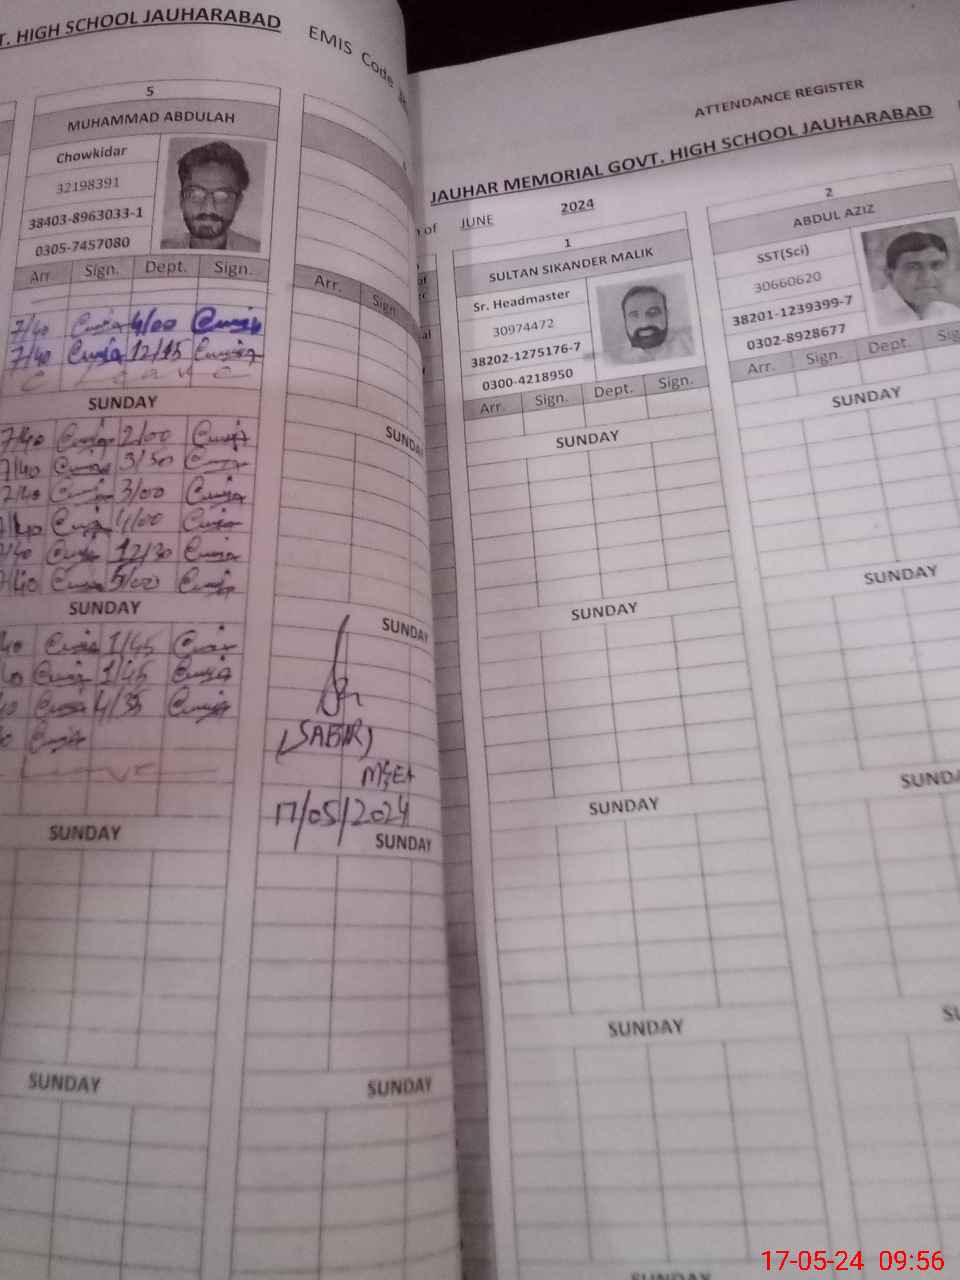 T. HIGH SCHOOL JAUHARABAD
EMIS Code
5
MUHAMMAD ABDULAH
Chowkidar
32198391
38403-8963033-1
0305-7457080
Arr. Sign. Dept. Sign.
7/40 4/00
7/40 12/15
Leave
SUNDAY
7/40 2/00
7/40 3/50
7/40 3/00
7/40 4/00
7/40 12/30
7/40 5/00
SUNDAY
40 1/45
40 1/45
40 4/35
Leave
SUNDAY
SUNDAY
Arr. Sign
SUNDAY
SUNDAY
(SABIR)
MEA
17/05/2024
SUNDAY
SUNDAY
ATTENDANCE REGISTER
JAUHAR MEMORIAL GOVT. HIGH SCHOOL JAUHARABAD
of JUNE 2024
1
SULTAN SIKANDER MALIK
Sr. Headmaster
30974472
38202-1275176-7
0300-4218950
Arr. Sign. Dept. Sign.
SUNDAY
SUNDAY
SUNDAY
SUNDAY
SUNDAY
2
ABDUL AZIZ
SST(Sci)
30660620
38201-1239399-7
0302-8928677
Arr. Sign. Dept. Sig
SUNDAY
SUNDAY
SUNDA
SU
17-05-24 09:56